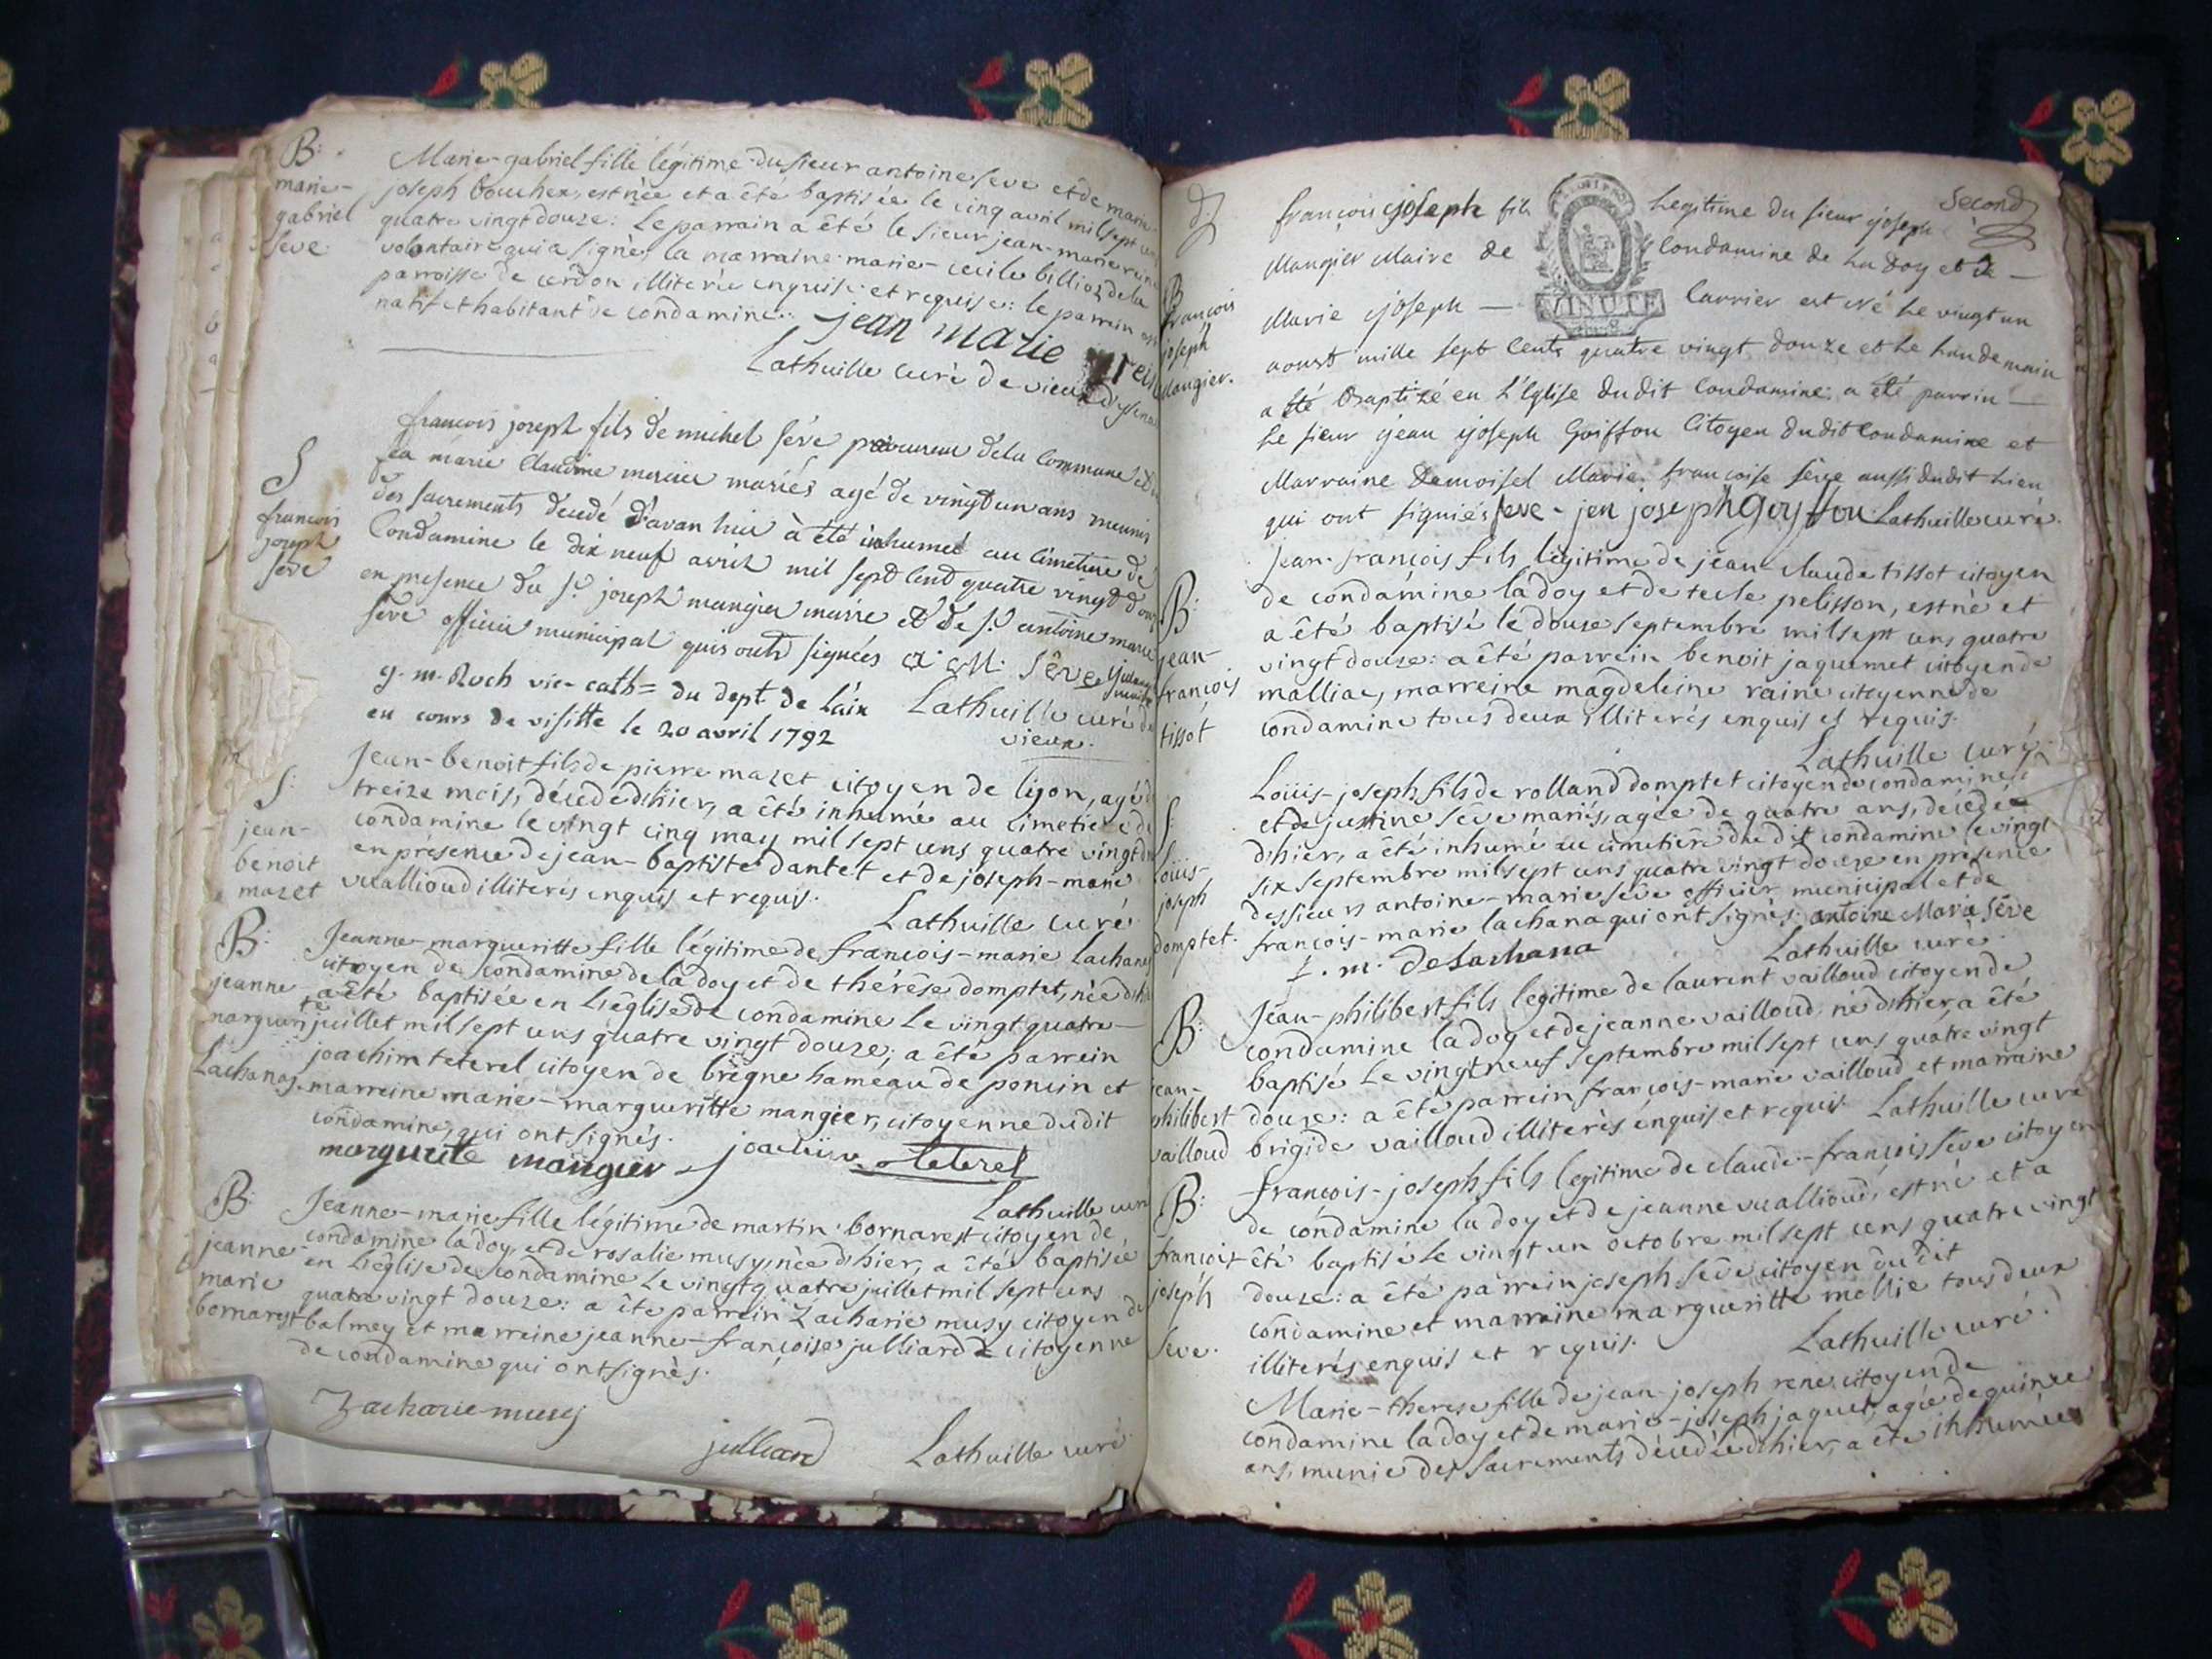 B:
marie-
gabriel
seve
Marie-gabriel fille légitime du sieur antoine seve et de marie-
joseph bouchex, est née et a été baptisée le cinq avril mil sept
quatre vingt douze: Le parrain a été le sieur jean-marie
volontaire qui a signé, la marraine marie-cecile billioz de la
parroisse de cerdon illiterée enquise et requise: le parrain
natif et habitant de condamine.
jean marie
Lathuille curé de vieux d'
S
françois
joseph
seve
françois joseph fils de michel séve procureur de la commune et
féa marie Claudine mercier mariés agé de vingt un ans meunis
des sacrements decedé d'avan hier à été inhumé au cimetiere de
Condamine le dix neuf avril mil sept cent quatre vingt
en presence du sr. joseph mangier maire et de sr. antoine marie
séve officier municipal quis ont signés a. M. Sêve
g. m. Roch vic- cath= du dept. de l'ain
en cours de visitte le 20 avril 1792
Lathuille curé de
vieux.
S:
jean-
benoit
mazet
Jean-benoit fils de pierre mazet citoyen de lyon, agé
treize mois, décédé d'hier, a été inhumé au cimetiere de
condamine le vingt cinq may mil sept cens quatre vingt
en présence de jean-baptiste dantet et de joseph-marie
vuallioud illiterés enquis et requis.
Lathuille curé
B:
jeanne
marguerit
te
Lachanas
Jeanne-margueritte fille légitime de françois-marie Lachana
citoyen de condamine de la doy et de thérêse domptet, née
a été baptisée en L'église de condamine Le vingt quatre-
juillet mil sept cens quatre vingt douze; a été parrein
joachim teterel citoyen de brêgne haméau de poncin et
marreine marie-margueritte mangier, citoyenne dudit
condamine, qui ont signés.
marguerite mangier joachim teterel
Lathuille curé
B:
jeanne
marie
bornarest
Jeanne-marie fille légitime de martin bornarest citoyen de
condamine la doy, et de rosalie musy, née d'hier, a été baptisée
en L'église de condamine Le vingt quatre juillet mil sept cens
quatre vingt douze: a été parrein Zacharie musy citoyen de
balmey et marreine jeanne-françoise julliard citoyenne
de condamine qui ont signés.
Zacharie musy
julliard
Lathuille curé
second
B
françois
joseph
Mangier.
françois joseph fils Legitime du sieur joseph
Mangier Maire de Condamine de La Doy et de
Marie joseph - Carrier est Né Le vingt un
aoust mille sept Cents quatre vingt douze et Le Lendemain
a été Baptizé en L'Eglise dudit Condamine: a été parrin
Le sieur jean joseph Goiffon Citoyen dudit Condamine et
Marraine Demoisel Marie francoise séve aussi dudit Lieu
qui ont signiés seve - jen joseph goyffon Lathuille curé.
MINUTE
B:
jean-
françois
tissot
jean-françois fils légitime de jean-claude tissot citoyen
de condamine la doy et de tecle pelisson, est né et
a été baptisé le douze septembre mil sept cens quatre
vingt douze: a été parrein benoit jaquemet citoyen de
malliac, marreine magdeleine raine citoyenne de
condamine tous deux illiterés enquis et requis.
Lathuille curé
S:
Loüis-
joseph
domptet.
Loüis-joseph fils de rolland domptet citoyen de condamine
et de justine sêve mariés, agée de quatre ans, decédé
d'hier, a été inhumé au cimetiere du dit condamine le vingt
six septembre mil sept cens quatre vingt douze en présence
des sieurs antoine-marie sêve officier municipal et de
françois-marie lachana qui ont signés. antoine Marie séve
f. m. de Lachana
Lathuille curé
B:
jean-
philibert
vailloud
Jean-philibert fils legitime de laurent vailloud citoyen de
condamine la doy et de jeanne vailloud, né d'hier, a été
baptisé Le vingt neuf septembre mil sept cens quatre vingt
douze: a été parrein françois-marie vailloud et marraine
brigide vailloud illiterés enquis et requis Lathuille curé
B:
françois
joseph
seve.
françois-joseph fils legitime de claude-françois sève citoyen
de condamine la doy et de jeanne vuallioud, est né et a
été baptisé Le vingt un octobre mil sept cens quatre vingt
douze: a été parrein joseph sêve citoyen du dit
condamine et marraine margueritte mollie tous deux
illiterés enquis et requis.
Lathuille curé.
Marie-therese fille de jean-joseph rene citoyen de
condamine la doy et de marie-joseph jaquet, agée de quinze
ans, munie des sacrements décédée d'hier, a été inhumée